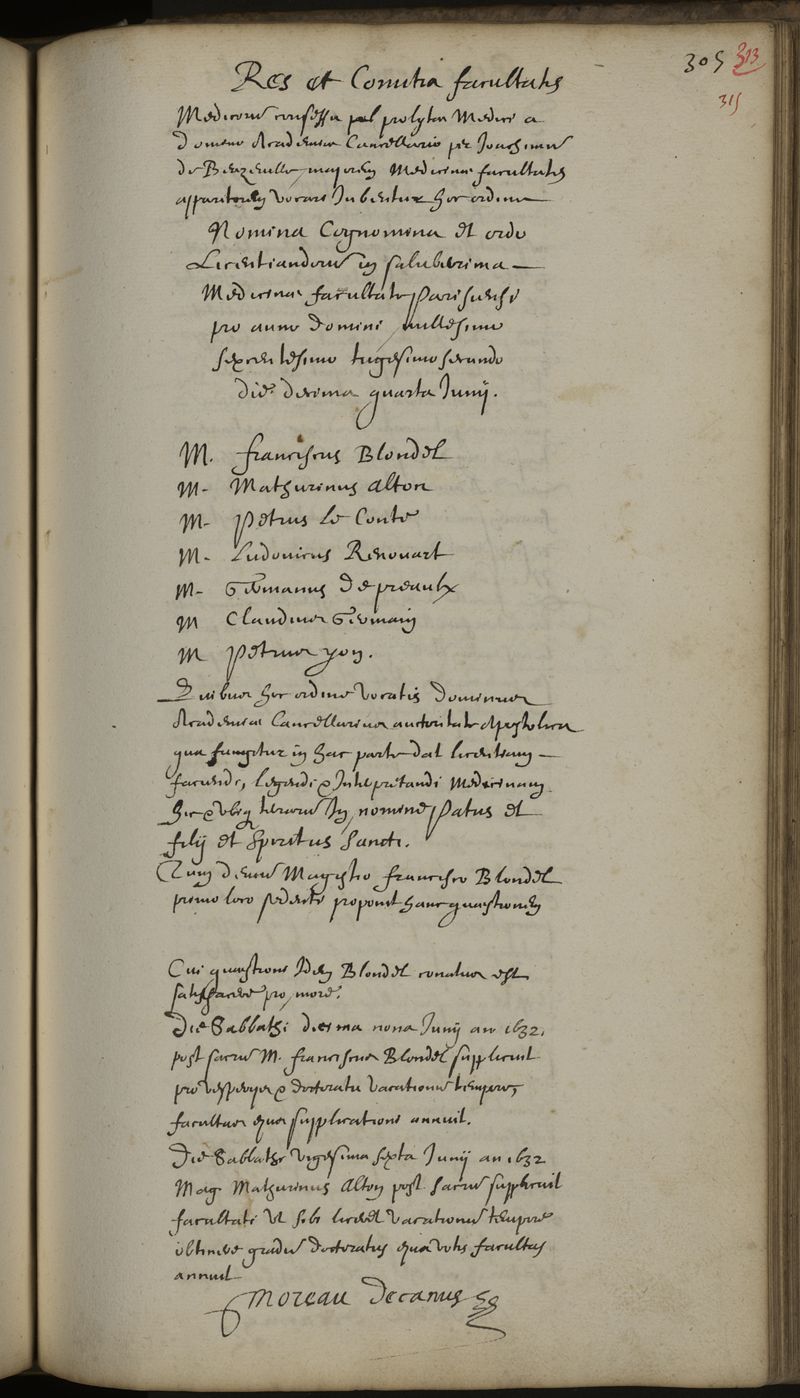 305 313
315
Res et Comitia facultatis
Medicorum consessu Medici a
Domino Academiae Cancellario per Joachimum
de majorem Medicinae facultatis
apparitorem vocari Jubentur hoc ordine
Nomina Cognomina et ordo
Licentiandorum in saluberrima
Medicinae facultate Parisiensi
pro anno Domini millesimo
sexcentesimo trigesimo secundo
die decima quarta Junij.
M. franciscus Blondel
M. Mathurinus Alton
M. Petrus Le Conte
M. Ludovicus Renouart
M. Germanus De preaulx
M Claudius Germain
M Petrus yon.
Quibus hoc ordine vocatis Dominus
Academiae Cancellarius auctoritate Apostolica
qua fungitur in hac parte dat licentiam
faciendi, legendi & Interpretandi Medicinam
hic & ubiq terrarum In nomine Patris et
filij et Spiritus Sancti.
Tum Magistro francisco Blondel
primo loco sedenti proponit hanc quaestionem
Cui quaestioni Idem Blondel conatus est
satisfacere pro more.
Die Sabbathi decima nona Junij an 1632,
post sacrum M. franciscus Blondel supplicuit
pro vesperijs & doctoratu vacationum tempore,
facultas eius supplicationi annuit.
Die Sabbathi vigesima sexta Junij an 1632
Mag. Mathurinus Alton post Sacrum supplicuit
facultati ut sibi liceret vacationum tempore
obtinere gradum doctoratus eius votis facultas
annuit
Moreau Decanus